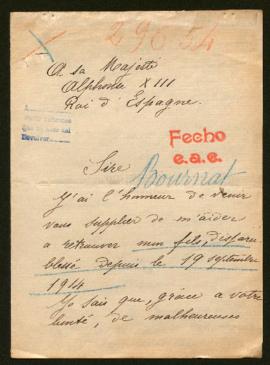 29654
A sa Majesté
Alphonse XIII
Roi d'Espagne.
Devolver.
Fecho
e.a.e.
Sire
Bournat
J'ai l'honneur de venir
vous supplier de m'aider
a retrouver mon fils, disparu
blessé depuis le 19 septembre
1914
Je sais que, grâce a votre
bonté, de malheureuses